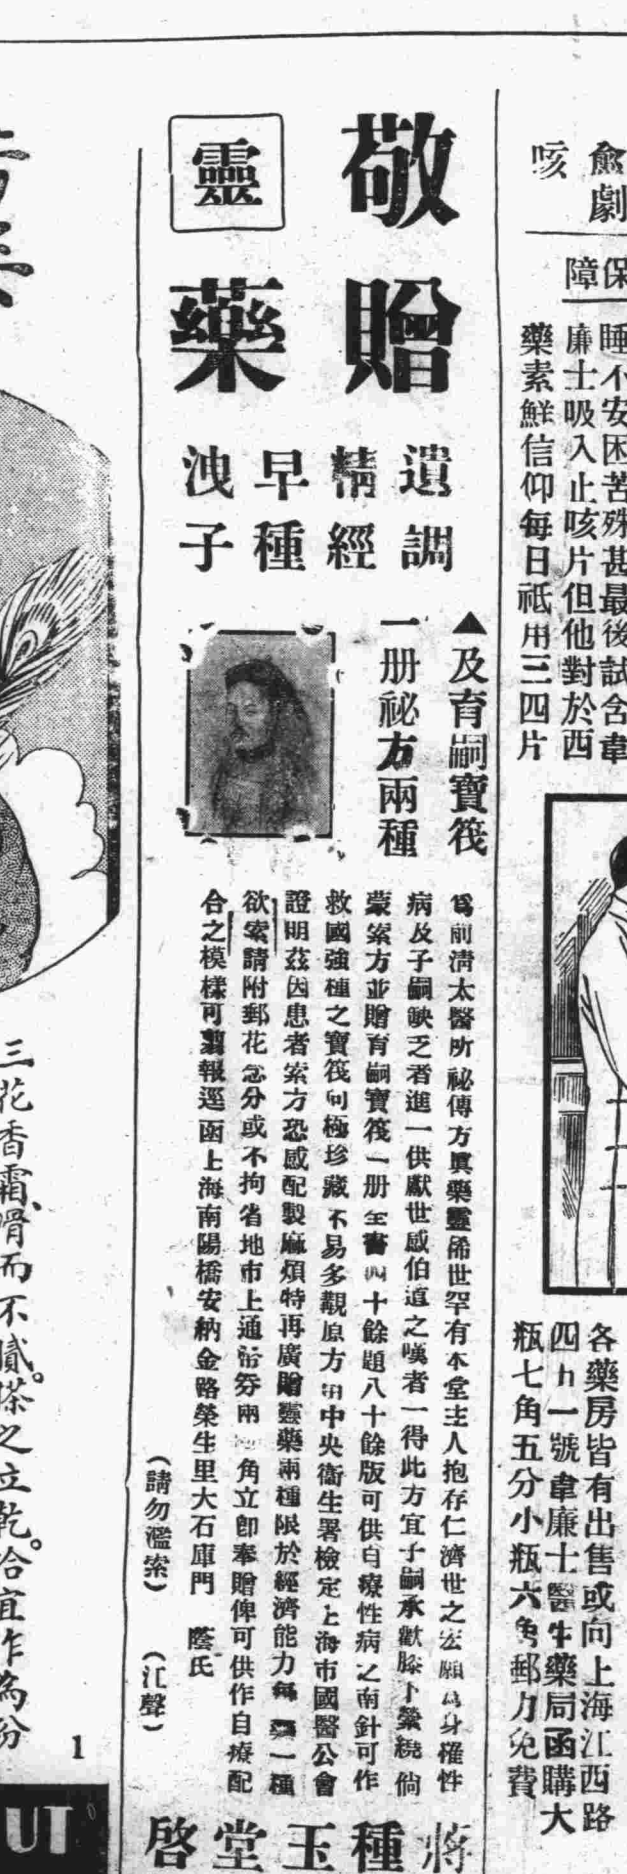 愈劇
咳
保障
睡不安困苦殊甚最後試含韋
廉士吸入止咳片但他對於西
藥素鮮信仰每日祇用三四片
各藥房皆有出售或向上海江西路
四五一號韋廉士醫生藥局函購大
瓶七角五分小瓶六角郵力免費
敬贈
靈藥
遺精早洩
調經種子
▲及育嗣寶筏
一册祕方兩種
爲前淸太醫所祕傳方眞藥靈稀世罕有本堂主人抱存仁濟世之宏願爲身罹性
病及子嗣缺乏者進一供獻世感伯道之嘆者一得此方宜子嗣承歡膝下縈繞倘
蒙索方並贈育嗣寶筏一册全書四十餘題八十餘版可供自療性病之南針可作
救國強種之寶筏向極珍藏不易多觀原方由中央衞生署檢定上海市國醫公會
證明茲因患者索方恐感配製麻煩特再廣贈靈藥兩種限於經濟能力每 一種
欲索請附郵花念分或不拘省地市上通 劵兩 角立卽奉贈俾可供作自療配
合之模樣可剪報逕函上海南陽橋安納金路榮生里大石庫門 蔭氏
(請勿濫索) (江聲)
蔣種玉堂啓
三花香霜滑而不膩。搽之立乾。恰宜作為粉
1
UT